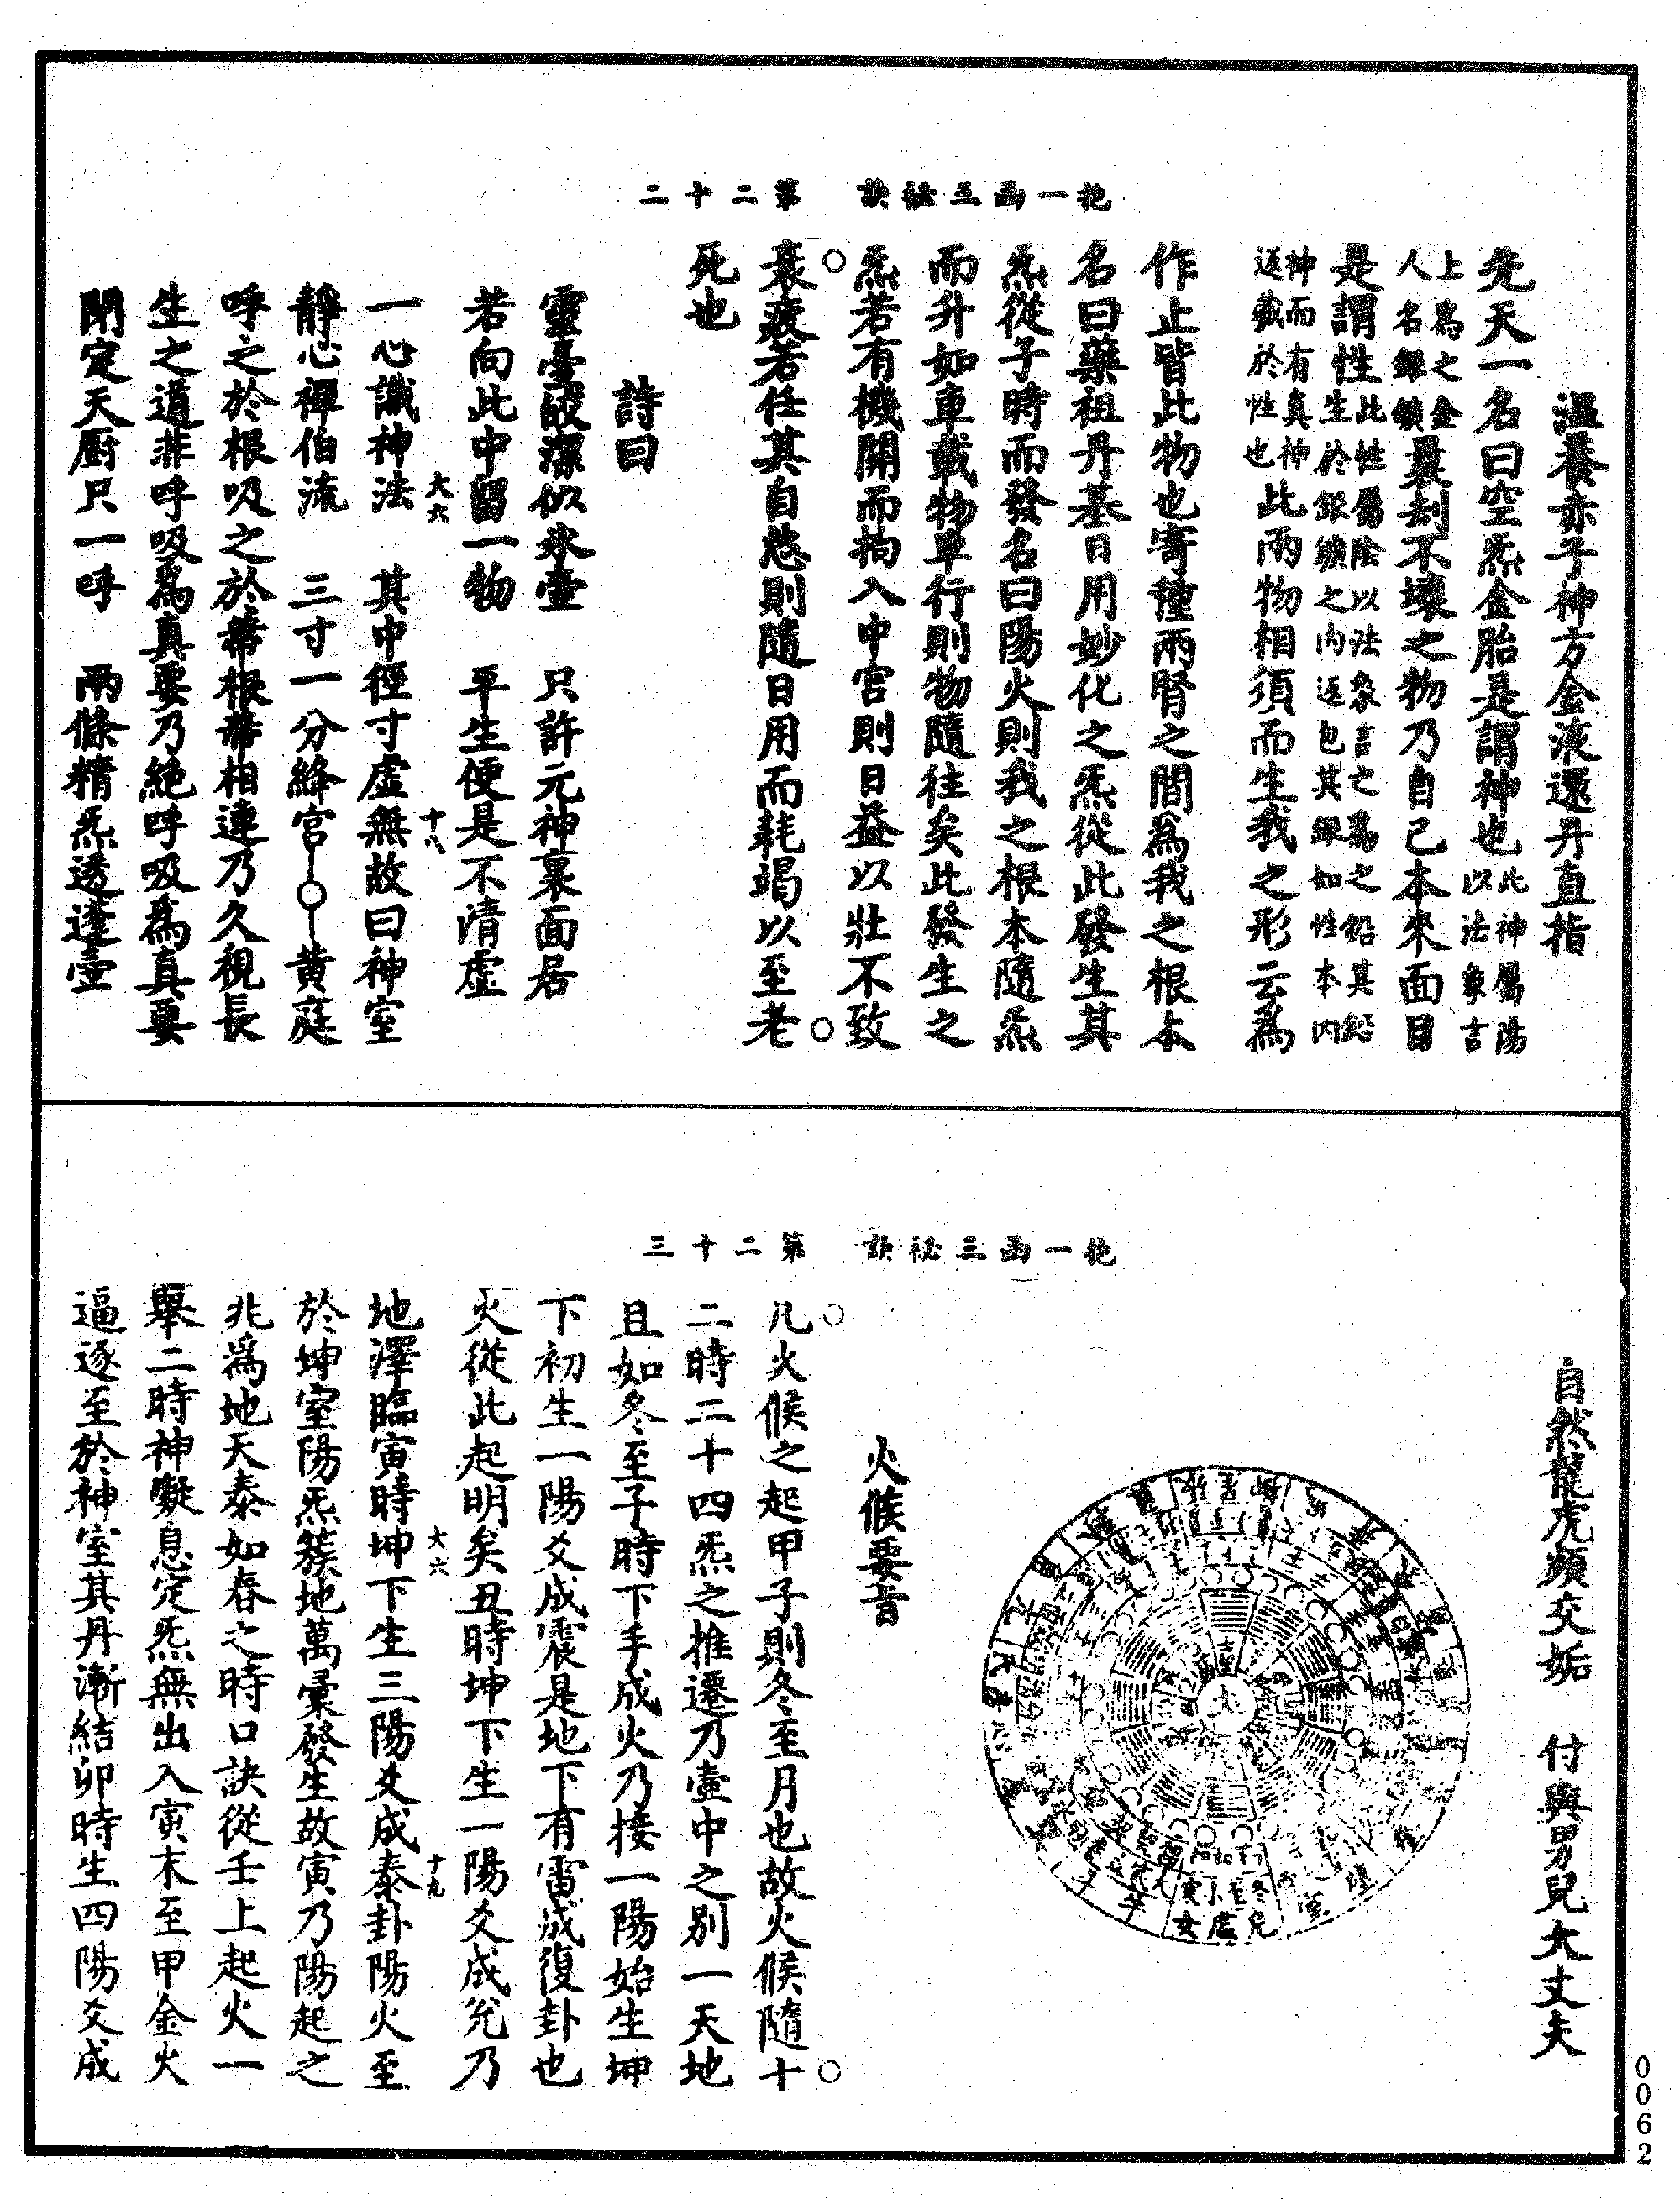 抱一函三祕訣　第二十二
溫養赤子神方金液還丹直指
先天一名曰空炁金胎是謂神也此神屬陽以法象言
上爲之金人名銀鑛曩刼不壞之物乃自己本來面目
是謂性此性屬陰以法象言之爲之鉛其鉛生於銀鑛之内返包其銀如性本内
神而有真神返藏於性也此兩物相須而生我之形云爲
作止皆此物也寄種兩腎之間爲我之根本
名曰藥祖丹基日用妙化之炁從此發生其
炁從子時而發名曰陽火則我之根本隨炁
而升如車載物車行則物隨往矣此發生之
炁若有機關而拘入中宮則日益以壯不致
衰疲若任其自慫則隨日用而耗竭以至老
死也
詩曰
靈臺皎潔似氷壺　只許元神裏面居
若向此中留一物　平生便是不清虛
一心識神法　其中徑寸虛無故曰神室
靜心禪伯流　三寸一分絳宮—○—黃庭
呼之於根吸之於蔕根蔕相連乃久視長
生之道非呼吸爲真要乃絕呼吸爲真要
閉定天厨只一呼　兩條精炁透蓬壺
大六
十八
抱一函三祕訣　第二十三
自然龍虎頻交姤　付與男兒大丈夫
火候要旨
凡火候之起甲子則冬至月也故火候隨十
二時二十四炁之推遷乃壺中之別一天地
且如冬至子時下手成火乃接一陽始生坤
下初生一陽爻成震是地下有雷成復卦也
火從此起明矣丑時坤下生一陽爻成兊乃
地澤臨寅時坤下生三陽爻成泰卦陽火至
於坤室陽炁簇地萬彙發生故寅乃陽起之
兆爲地天泰如春之時口訣從壬上起火一
舉二時神凝息定炁無出入寅末至甲金火
逼逐至於神室其丹漸結卯時生四陽爻成
大六
十九
0062